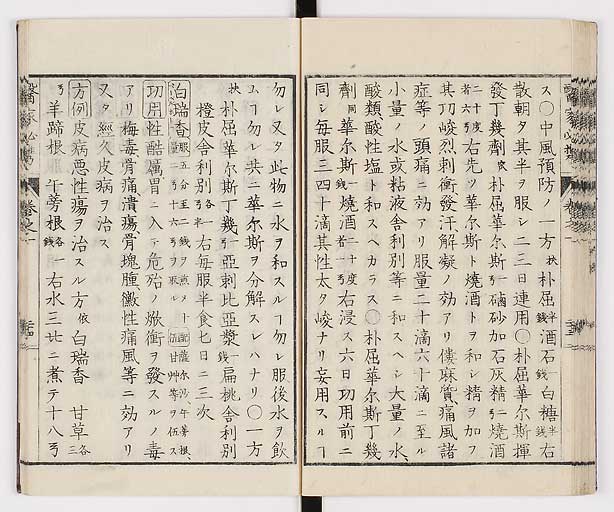 ス○中風預防ノ一方 扶 朴屈 半錢 酒石 一錢 白糖 半錢 右
散朝夕其半ヲ服シ二三日連用○朴屈華尔斯揮
發丁幾劑 扶 朴屈華尔斯 一 硇砂加石灰精 二 燒酒
二十度者六 右先ツ華尔斯ト燒酒トヲ和シ精ヲ加フ
其功峻烈刺衝發汗解凝ノ効アリ僂麻質痛風諸
症等ノ頭痛ニ効アリ服量二十滴六十滴ニ至ル
小量ノ水或粘液舍利別等ニ和スヘシ大量ノ水、
酸類酸性塩ト和スヘカラス○朴屈華尔斯丁幾
劑 同 華尔斯 錢 燒酒 二十度者 右浸ス六日功用前ニ
同シ毎服三四十滴其性太タ峻ナリ妄用スルヿ
勿レ又タ此物ニ水ヲ和スルヿ勿レ服後水ヲ飲
ムヿ勿レ共ニ華尔斯ヲ分解スレハナリ○一方
扶 朴屈華尔斯丁幾 亞刺比亞漿 錢 扁桃舍利別
橙皮舍利別 各 右毎服半食匕日二三次
泊瑞香 服量 五分至二錢ヲ煎ヲトリ十六ヲ取ル 伍 蘿尓沙牛蒡根、甘艸等ヲ伍ス
功用 性酷厲胃ニ入テ危殆ノ焮衝ヲ發スルノ毒
アリ梅毒骨痛潰瘍骨塊腫黴性痛風等ニ効アリ
又タ 經久皮病ヲ治ス
方例 皮病悪性瘍ヲ治スル方 依 白瑞香 甘草 各三
羊蹄根 牛蒡根 各一錢 右水三 ニ煮テ十八